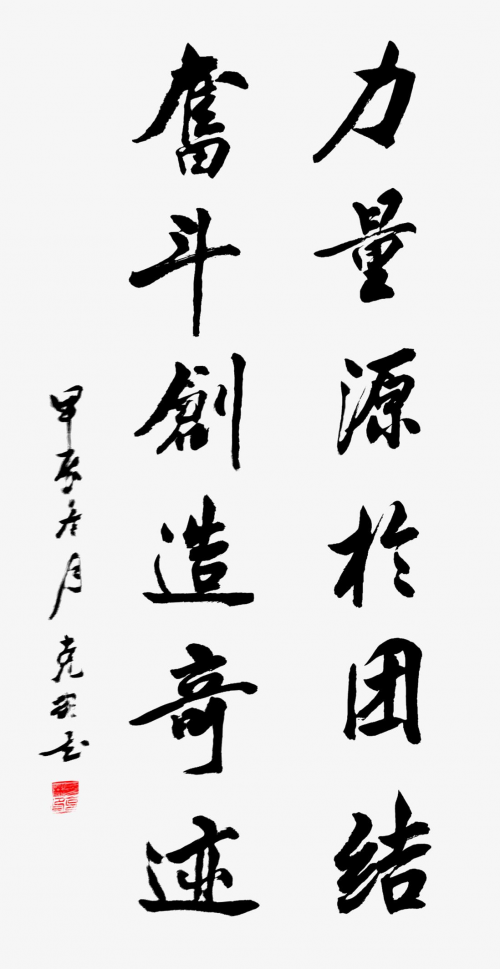 力量源於团结
奮斗創造奇迹
甲辰冬月克